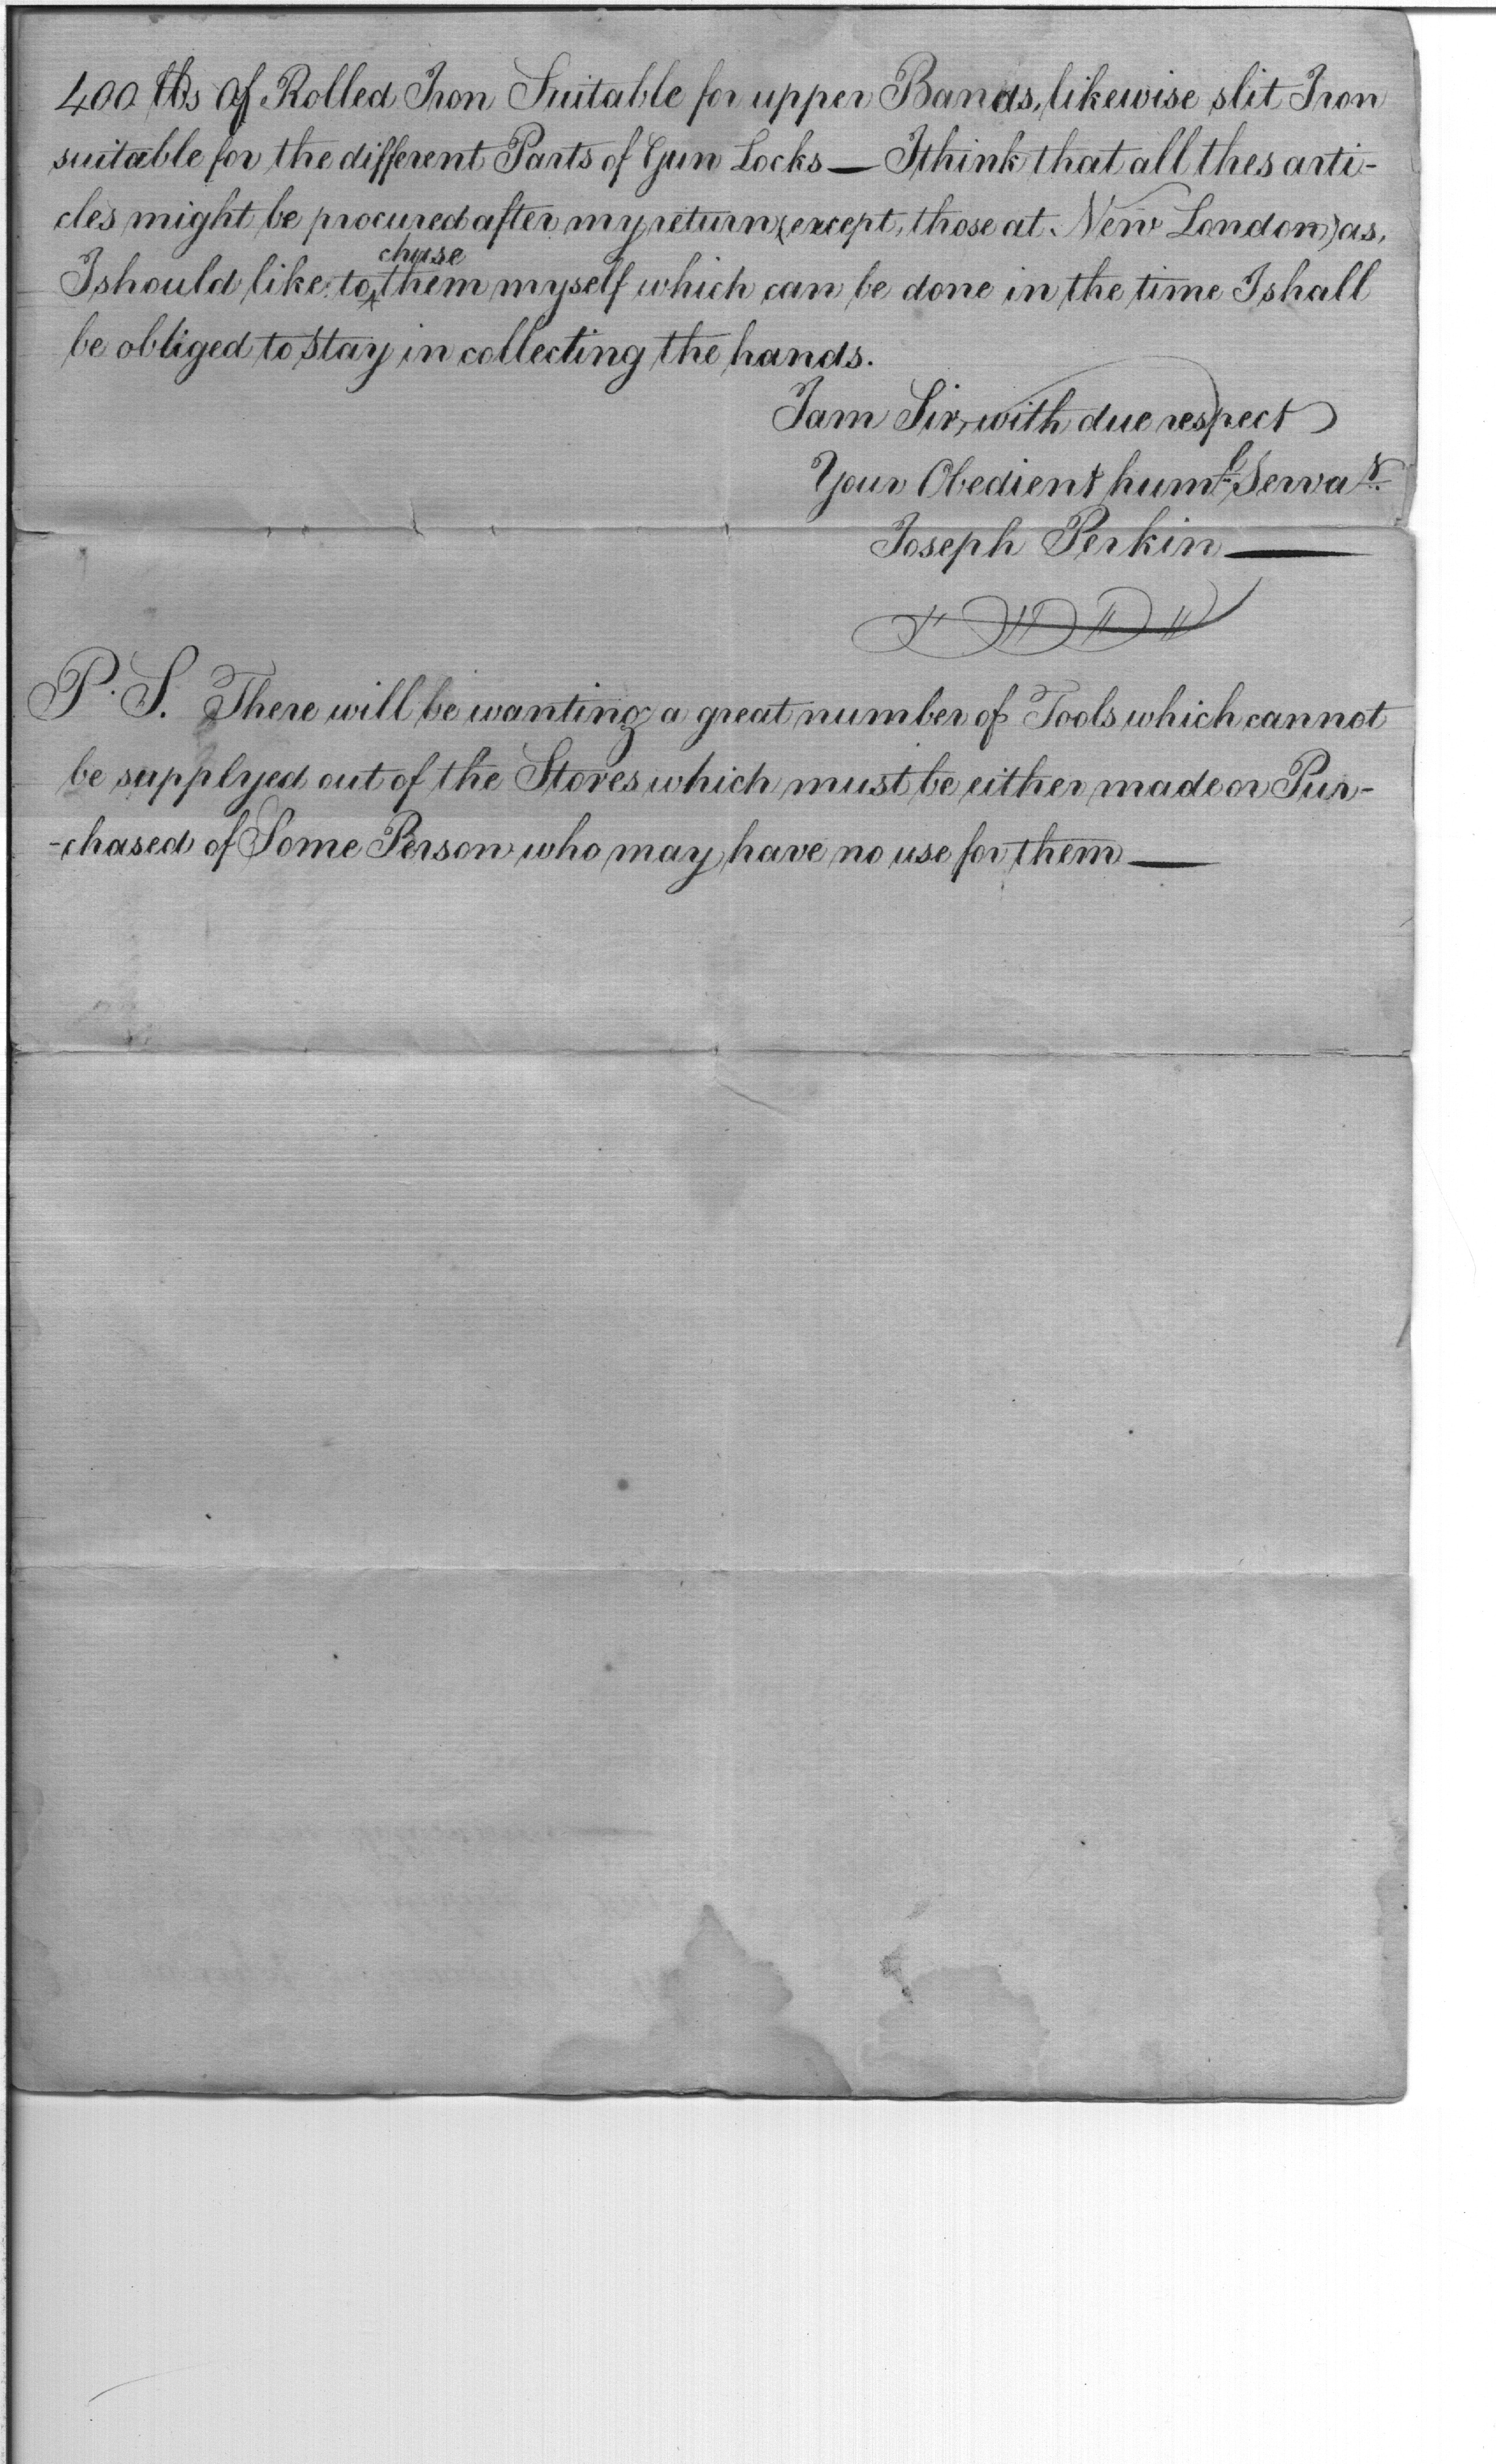 400 lbs of Rolled Iron Suitable for upper Bands, likewise slit Iron
suitable for the different Parts of Gun Locks — I think that all thes arti-
cles might be procured after my return (except, those at New London) as,
chuse
I should like to ^ them myself which can be done in the time I shall
be obliged to stay in collecting the hands.
I am Sir, with due respect
Your Obedient humle Servat.
Joseph Perkin —
P. S. There will be wanting a great number of Tools which cannot
be supplyed out of the Stores which must be either made or Pur-
-chased of Some Person who may have no use for them —